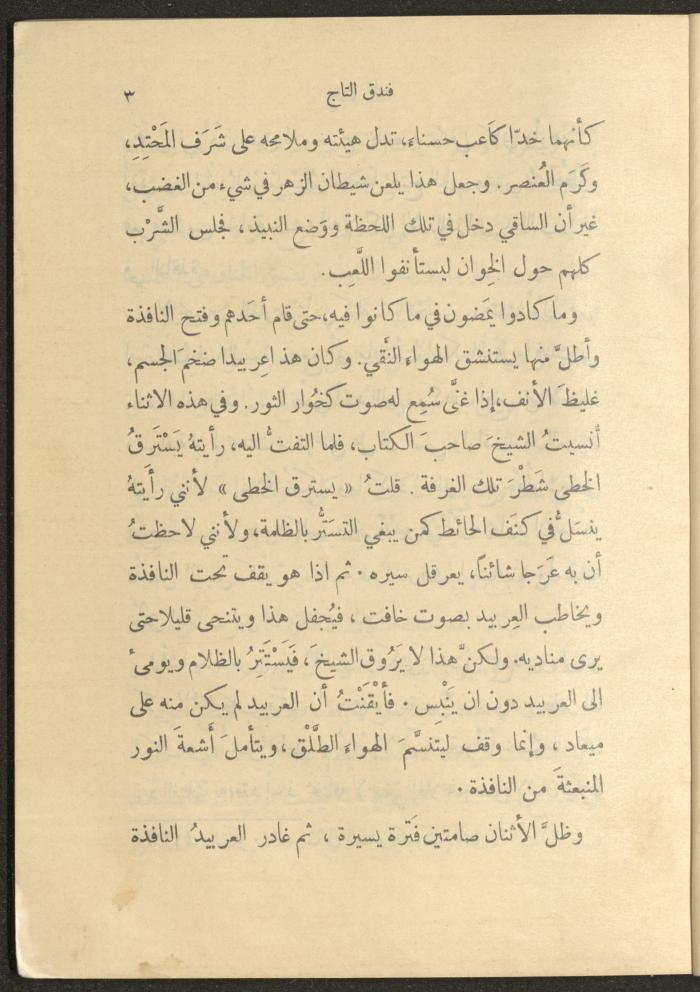 فندق التاج ٣
كأنهما خدّا كَاعب حسناء، تدل هيئته وملامحه على شَرَف المَحْتِدِ،
وكَرَم العُنصر. وجعل هذا يلعن شيطان الزهر في شيء من الغضب،
غير أن الساقي دخل في تلك اللحظة ووَضع النبيذ، فجلس الشَّرْب
كلهم حول الخِوان ليستأنفوا اللَّعِب.
وما كادوا يمَضون في ما كانوا فيه، حتى قام أحَدهم وفتح النافذة
وأطلَّ منها يستنشق الهواء النْقي. وكان هذا عِربيدا ضخمَ الجسم،
غليظَ الأنف، إذا غنَّى سُمِع له صوت كخُوار الثور. وفي هذه الاثناء
أنسيتُ الشيخَ صاحبَ الكتاب، فلما التفتُّ اليه، رأيتهُ يَسْتَرقُ
الخطى شَطْرَ تلك الغرفة. قلتُ « يسترق الخطى » لأنني رأَيتهُ
ينسَلُّ في كنَف الحائط كمن يبغي التسَتُّر بالظلمة، ولأنني لاحظتُ
أن به عَرَجا شائناً، يعرقل سيره. ثم اذا هو يقف تحت النافذة
ويخاطب العِربيد بصوت خافت، فيُجفل هذا ويتنحى قليلا حتى
يرى مناديه. ولكنَّ هذا لا يَرُوق الشيخَ، فَيَسْتَتِرُ بالظلام ويومىء
الى العربيد دون ان يَنْبِس. فأيْقَنْتُ أن العربيد لم يكن منه على
ميعاد، وإنما وقف ليتنسَّمَ الهواء الطَّلْق، ويتأملَ أَشعةَ النور
المنبعثةَ من النافذة.
وظلَّ الأثنان صامتين فَترة يسيرة، ثم غادر العربيدُ النافذة